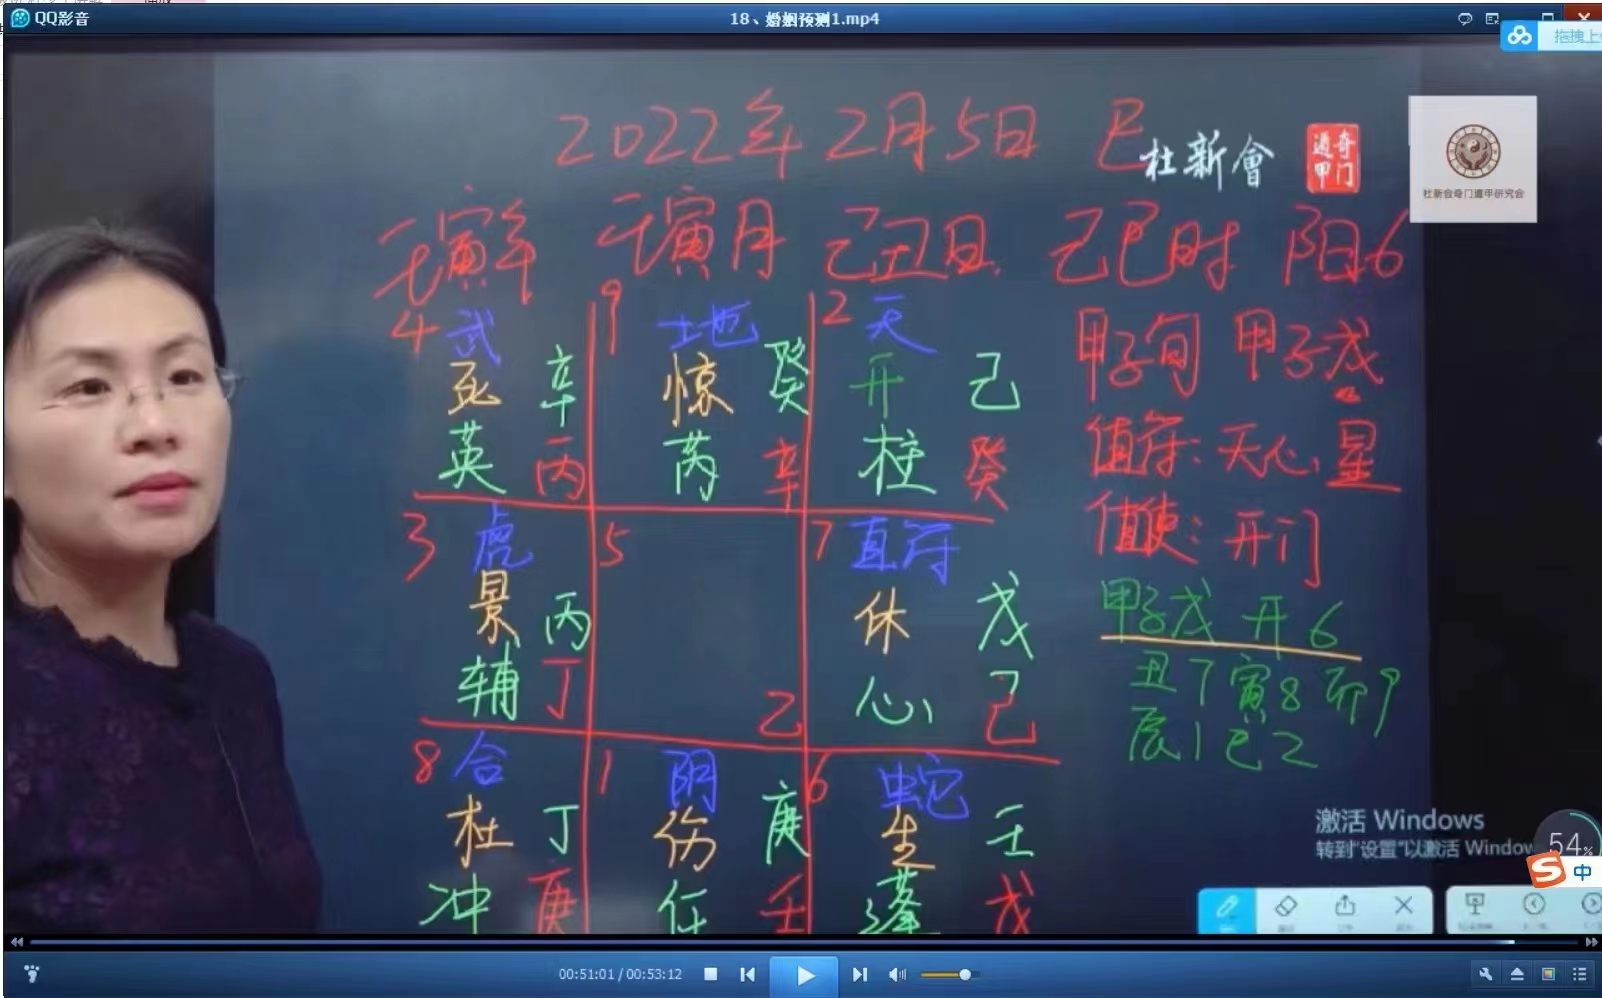 QQ影音
18、婚姻预测1.mp4
拖拽上
2022年 2月5日 巳
杜新會
遁奇
甲门
杜新会奇门遁甲研究会
壬寅年 壬寅月 己丑日 己巳时 阳6
4 武 9 地 2 天
死 辛 惊 癸 开 己
英 丙 芮 辛 柱 癸
3 虎 5 7 直符
景 丙 休 戊
辅 丁 乙 心 己
8 合 1 阴 6 蛇
杜 丁 伤 庚 生 壬
冲 庚 任 壬 蓬 戊
甲子旬 甲子戊
值符:天心星
值使:开门
甲子戊 开 6
丑7 寅8 卯9
辰1 巳2
激活 Windows
转到"设置"以激活 Window
54%
中
00:51:01 / 00:53:12